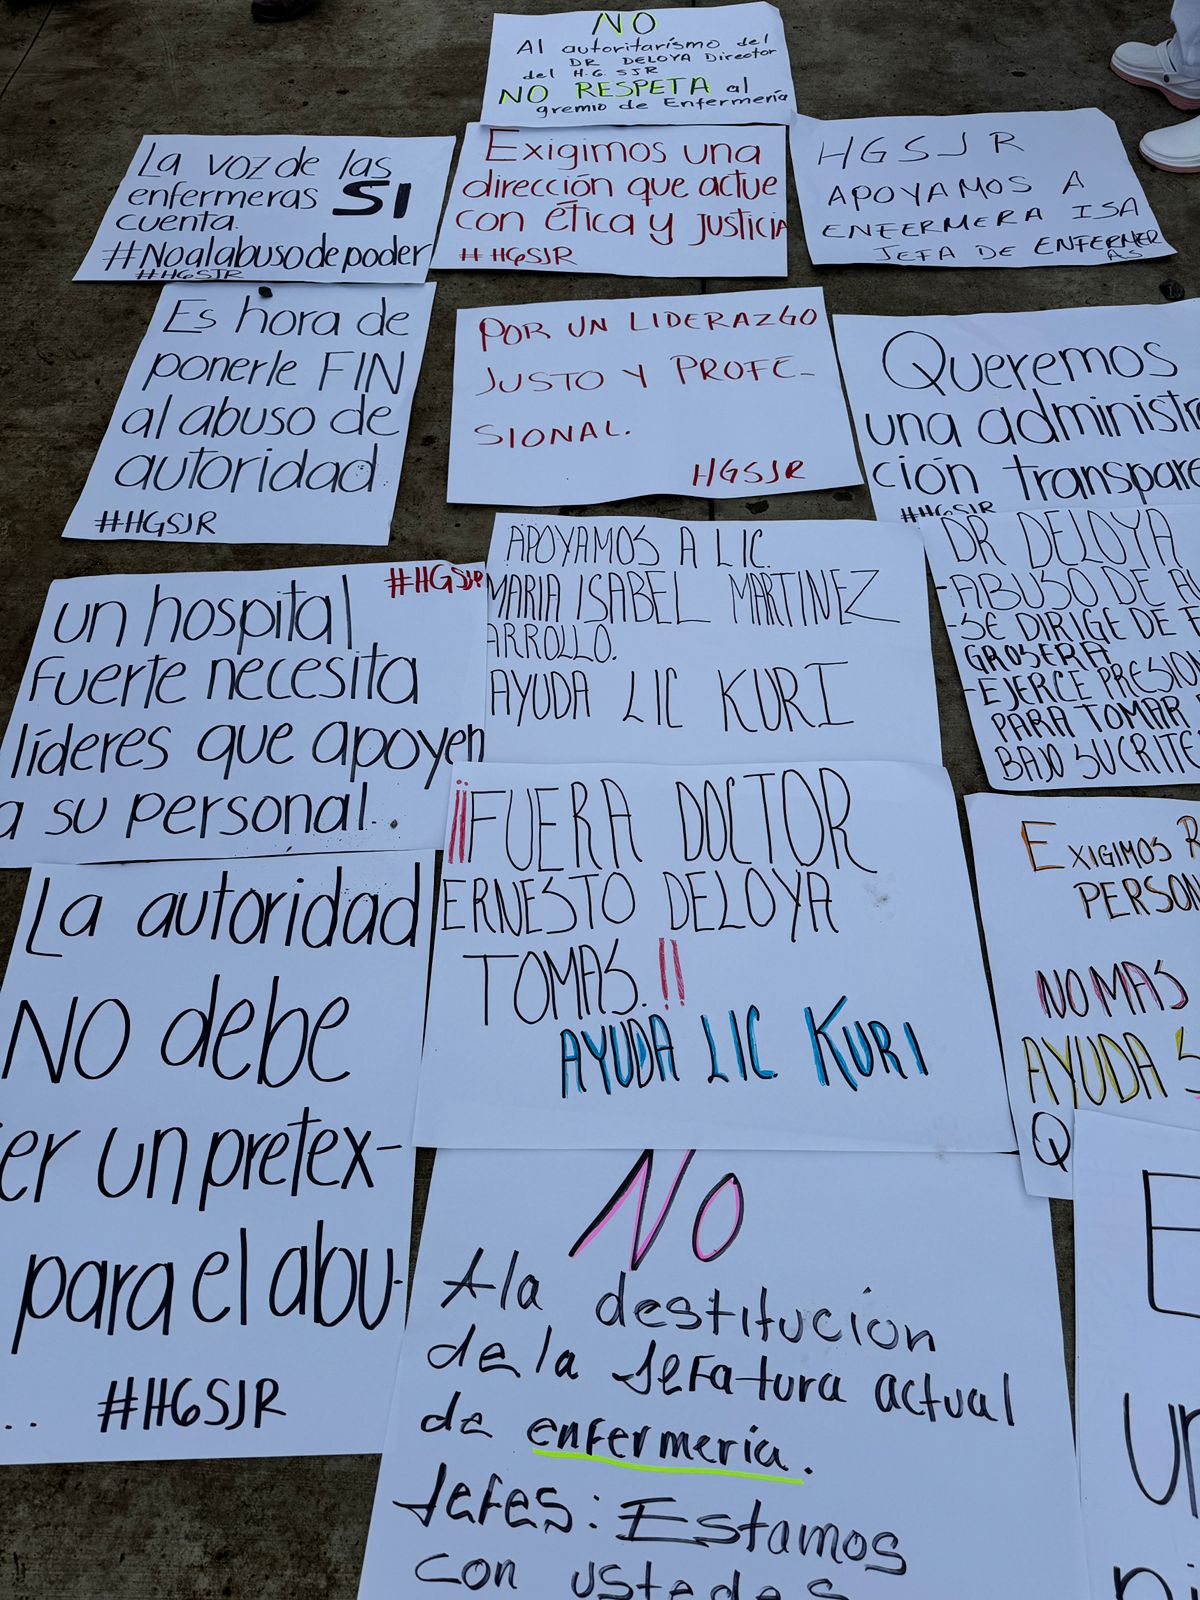 NO
Al autoritarismo del
DR DELOYA Director
del H.G. SJR
NO RESPETA al
gremio de Enfermería
La voz de las
enfermeras SI
cuenta.
#Noalabusodepoder
#HGSJR
Exigimos una
dirección que actue
con ética y justicia
#HGSJR
HGSJR
APOYAMOS A
ENFERMERA ISA
JEFA DE ENFERMER
AS
Es hora de
ponerle FIN
al abuso de
autoridad
#HGSJR
POR UN LIDERAZGO
JUSTO Y PROFE-
SIONAL.
HGSJR
Queremos
una administra
ción transpare
#HGSJR
#HGSJR
un hospital
Fuerte necesita
líderes que apoyen
a su personal.
APOYAMOS A LIC.
MARIA ISABEL MARTINEZ
ARROLLO.
AYUDA LIC KURI
DR DELOYA
-ABUSO DE AU
-SE DIRIGE DE F
GROSERA
-EJERCE PRESION
PARA TOMAR
BAJO SUCRITE
¡¡FUERA DOCTOR
ERNESTO DELOYA
TOMAS.!!
AYUDA LIC KURI
EXIGIMOS R
PERSON
NO MAS
AYUDA S
Q
La autoridad
NO debe
er un pretex-
para el abu-
.. #HGSJR
NO
A la destitución
de la Jefatura actual
de enfermería.
Jefes: Estamos
con ustedes
E
un